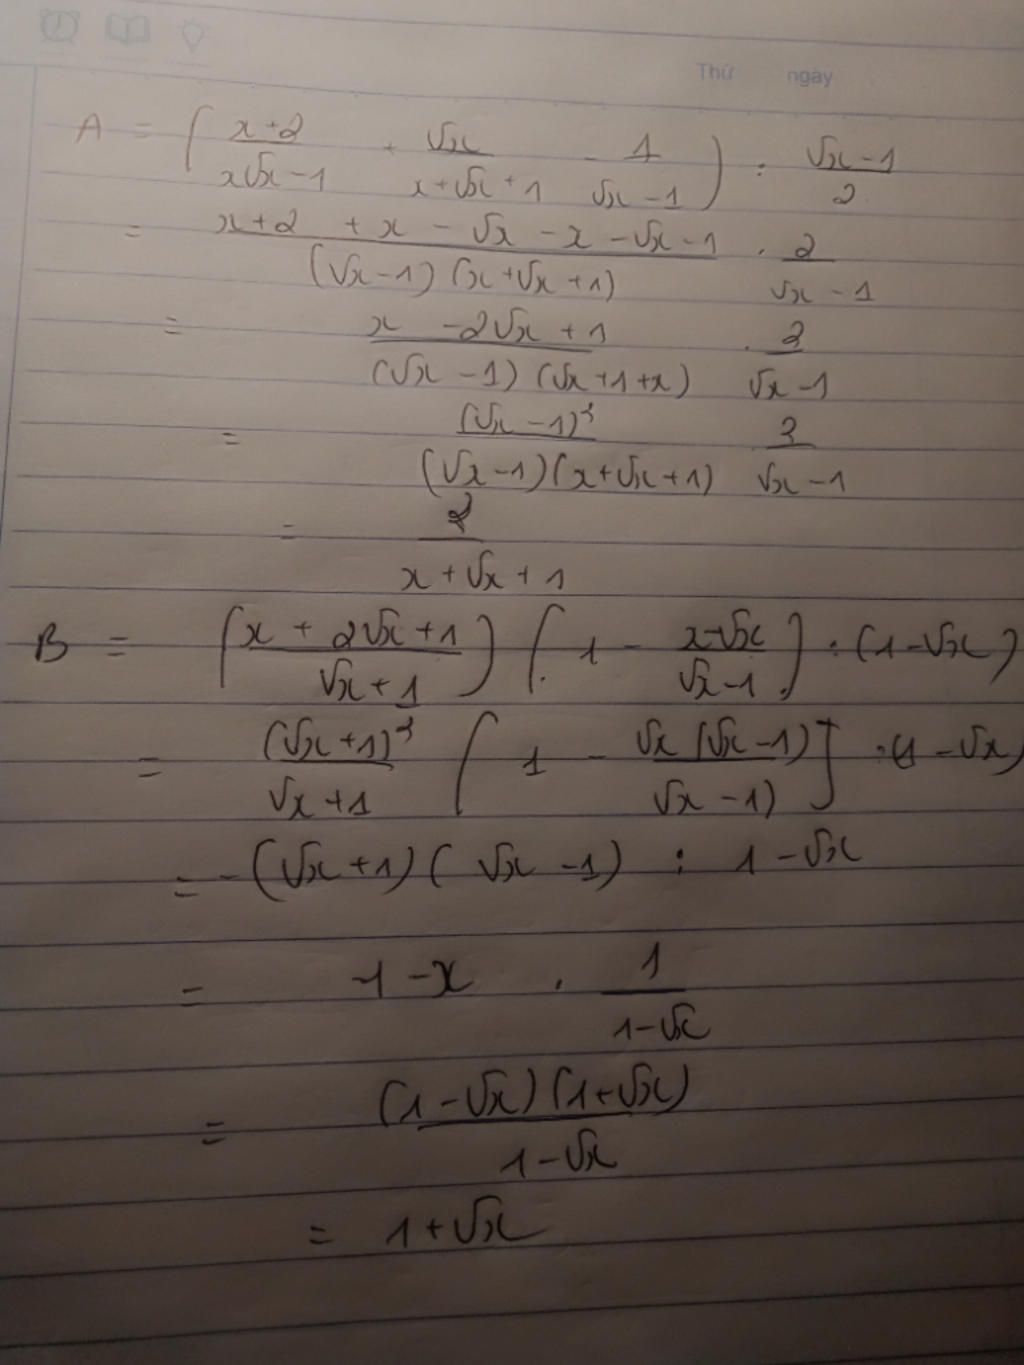 Thứ ngày
A = ( (x+2)/(x√x-1) + √x/(x+√x+1) - 1/(√x-1) ) : (√x-1)/2
= (x+2 + x - √x - x - √x - 1)/((√x-1)(x+√x+1)) . 2/(√x-1)
= (x -2√x + 1)/((√x-1)(√x+1+x)) . 2/(√x-1)
= (√x-1)²/((√x-1)(x+√x+1)) 2/(√x-1)
= 2/(x+√x+1)
B = ( (x+2√x+1)/(√x+1) ) ( 1 - (x-√x)/(√x-1) ) : (1-√x)
= (√x+1)²/(√x+1) [ 1 - √x(√x-1)/(√x-1) ] : (1-√x)
= -(√x+1)(√x-1) : 1-√x
= 1-x . 1/(1-√x)
= (1-√x)(1+√x)/(1-√x)
= 1+√x